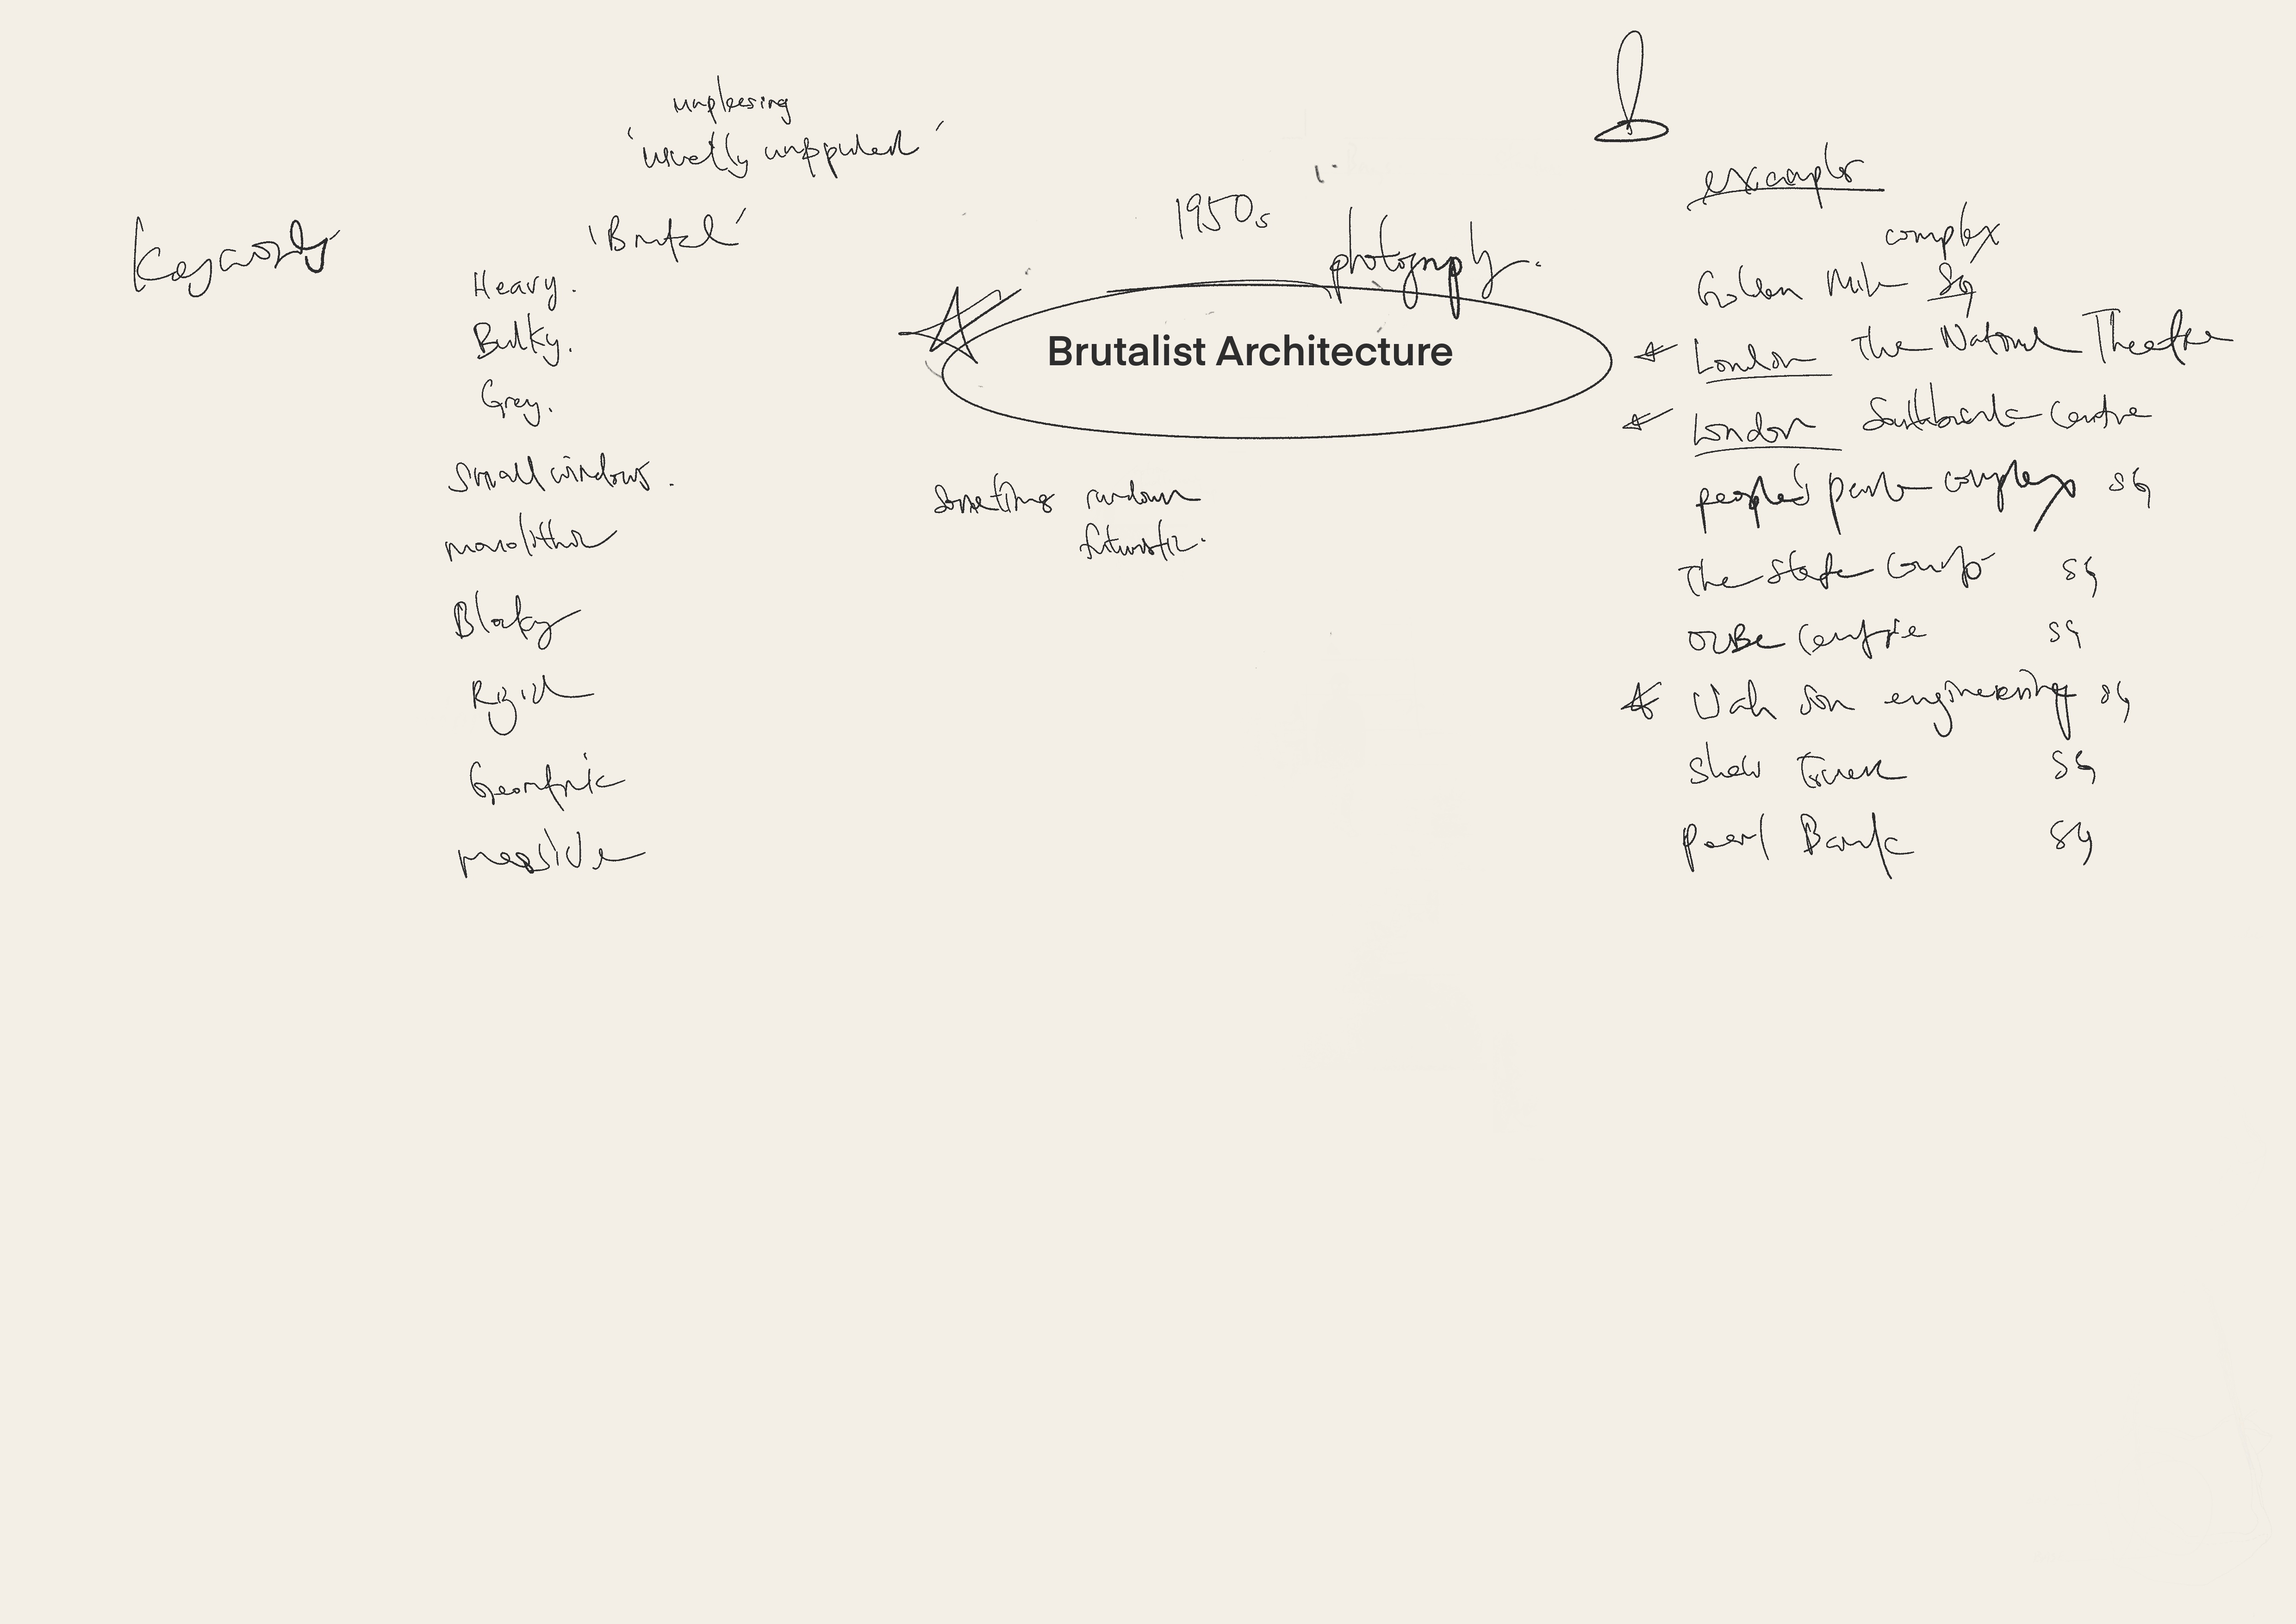 unpleesing
'usually unappealed'
Keywords
'Brutal'
Heavy.
Bulky.
Grey.
Small windows.
monolithic
Blocky
Rigid
Geometric
massive
1950s
photography.
Brutalist Architecture
Something random
futuristic.
examples
complex
Golden Mile Sg
London The National Theatre
London Southbank Centre
people's park complex SG
The State Courts SG
OUB Centre SG
Wah Son engineering SG
Shaw Tower SG
Pearl Bank SG